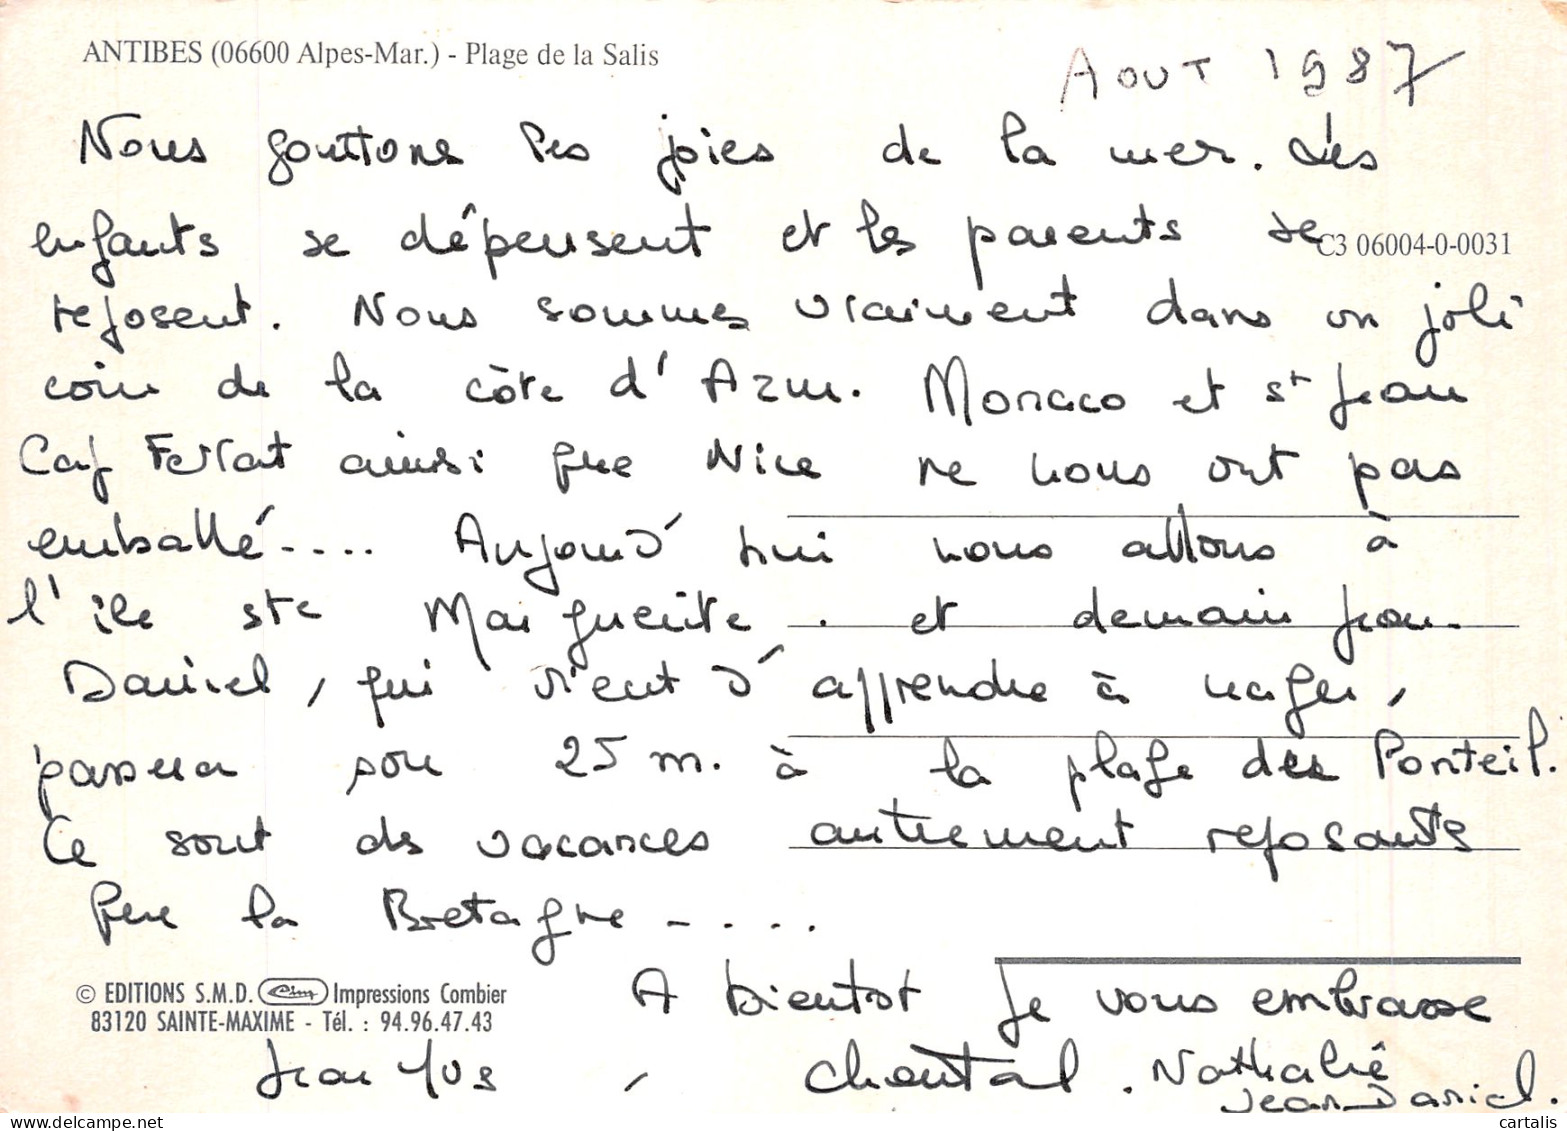 ANTIBES (06600 Alpes-Mar.) - Plage de la Salis
Aout 1987
Nous gouttons les joies de la mer. Les
enfants se dépensent et les parents se
C3 06004-0-0031
reposent. Nous sommes vraiment dans un joli
coin de la côte d'Azur. Monaco et St Jean
Cap Ferrat ainsi que Nice ne nous ont pas
emballé.... Aujourd'hui nous allons à
l'île ste Marguerite. et demain Jean-
Daniel, qui vient d'apprendre à nager,
passera son 25 m. à la plage des Ponteil.
Ce sont des vacances autrement reposants
que la Bretagne -....
© EDITIONS S.M.D. Cim Impressions Combier
83120 SAINTE-MAXIME - Tél. : 94.96.47.43
A bientot Je vous embrasse
Jean Yves, Chantal. Nathalie
Jean Daniel.
cartalis